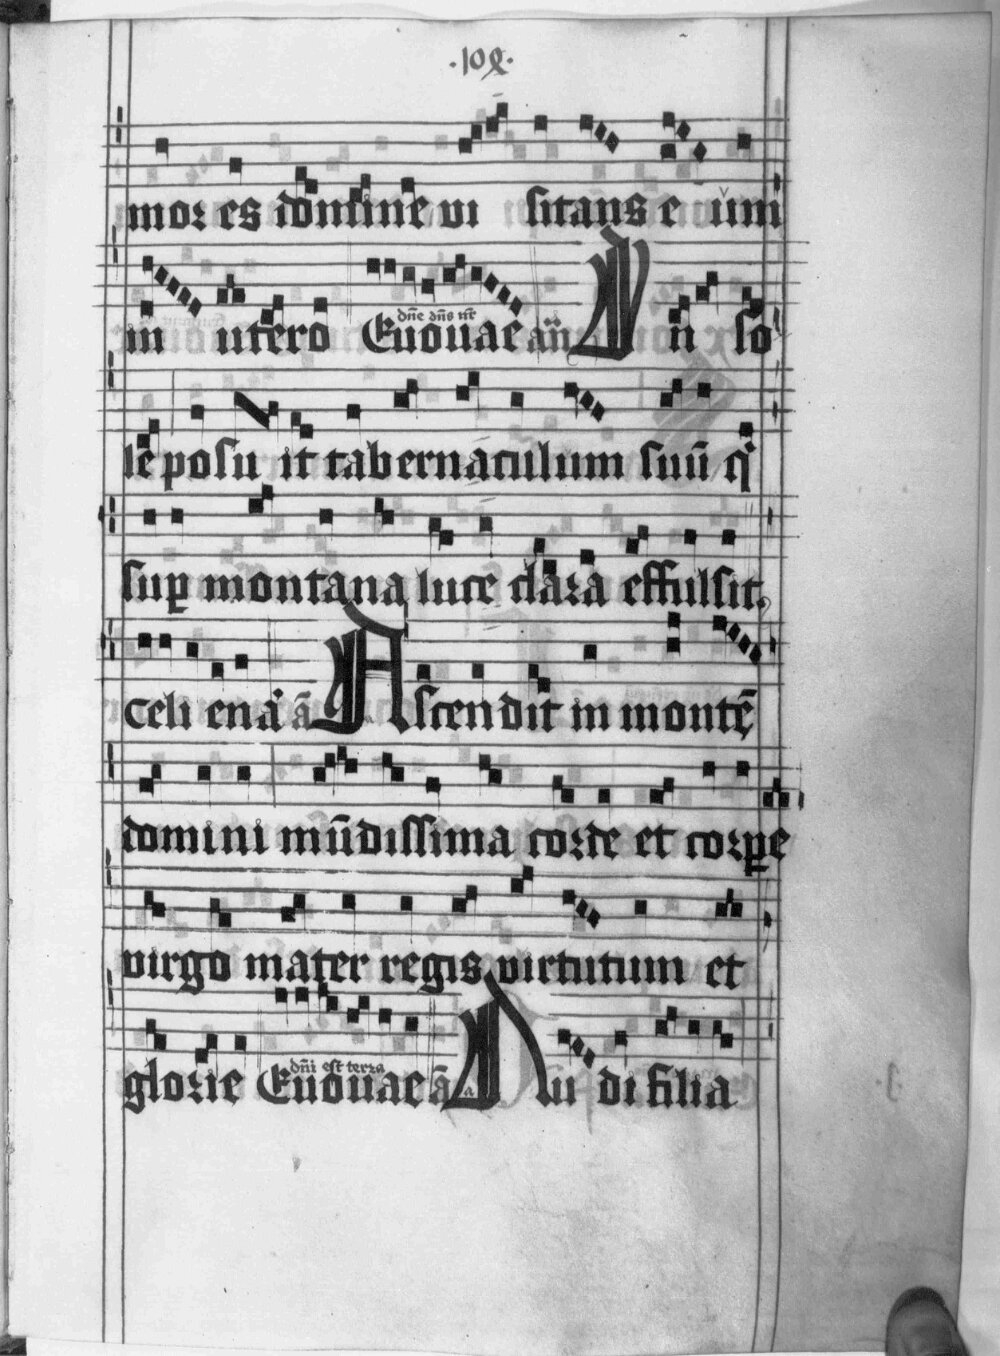 ·109·
mores domine vi sitans e uim
in utero Euouae an In so
dne dns nr
le posuit tabernaculum suū q
sup montana luce clara effulsit
celi enā ā Ascendit in montē
domini mūdissima corde et corpe
virgo mater regis virtutum et
dni est terra
glorie Euouae ā Audi filia